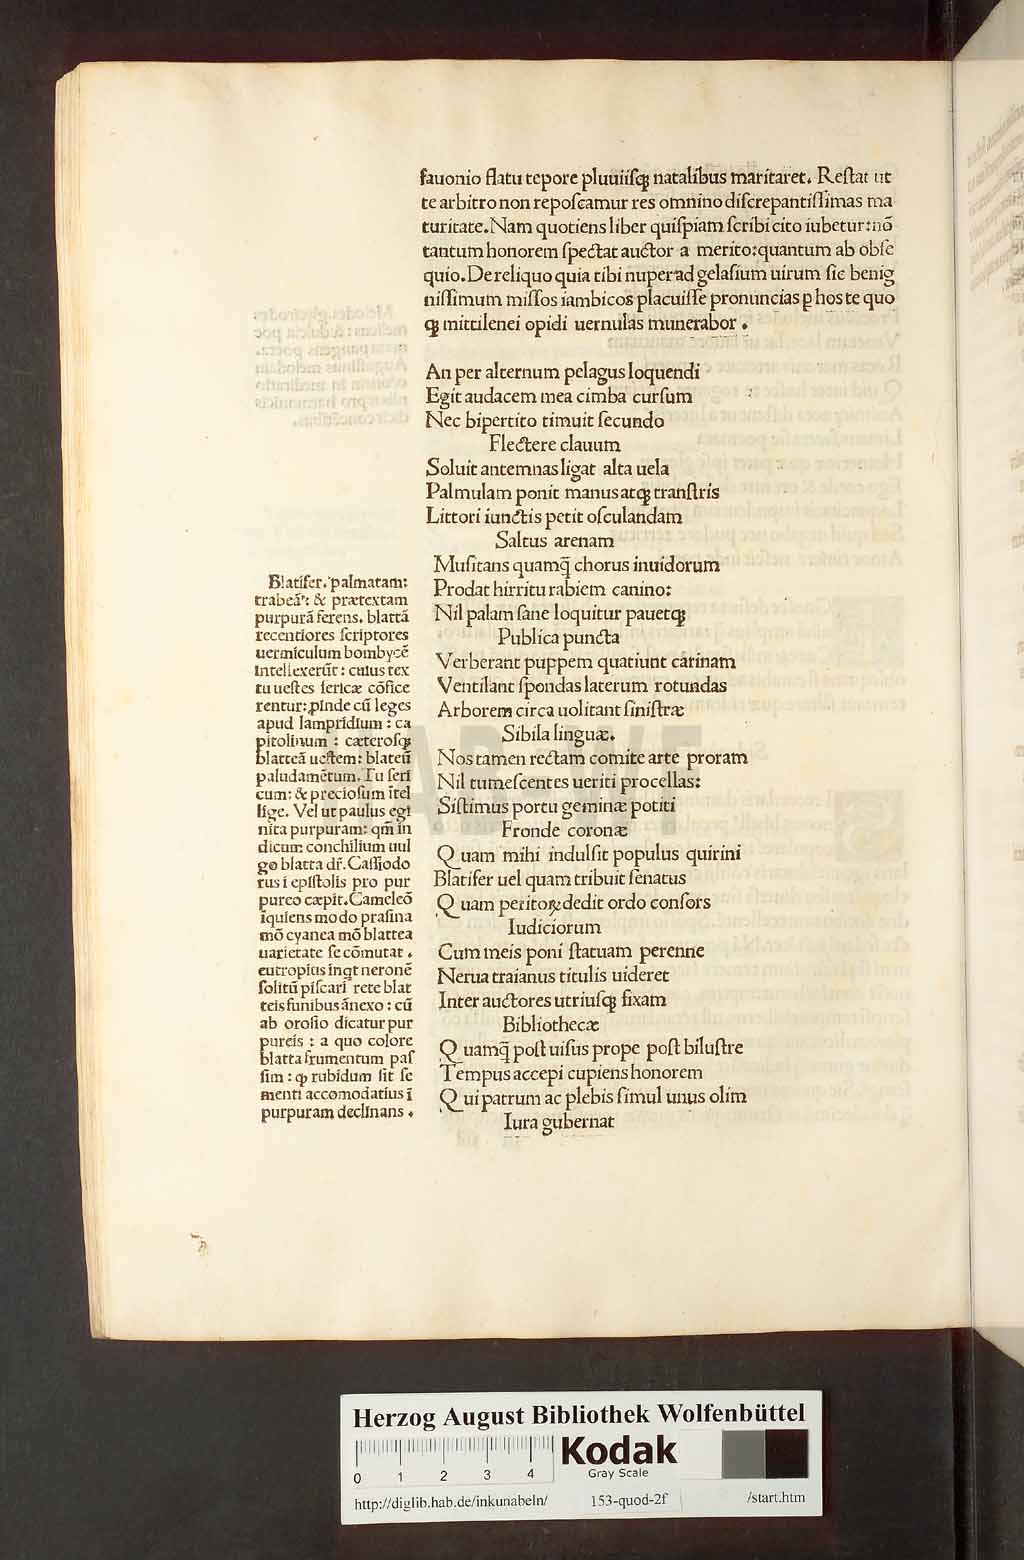 fauonio flatu tepore pluuiiſqꝫ natalibus maritaret. Reſtat ut
te arbitro non repoſcamur res omnino diſcrepantiſſimas ma
turitate. Nam quotiens liber quiſpiam ſcribi cito iubetur: nō
tantum honorem ſpectat auctor a merito: quantum ab obſe
quio. De reliquo quia tibi nuper ad gelaſium uirum ſic benig
niſſimum miſſos iambicos placuiſſe pronuncias ꝑ hos te quo
qꝫ mittilenei opidi uernulas munerabor.
An per alternum pelagus loquendi
Egit audacem mea cimba curſum
Nec bipertito timuit ſecundo
Flectere clauum
Soluit antemnas ligat alta uela
Palmulam ponit manus atqꝫ tranſtris
Littori iunctis petit oſculandam
Saltus arenam
Muſitans quamq̄ chorus inuidorum
Prodat hirritu rabiem canino:
Nil palam ſane loquitur pauetqꝫ
Publica puncta
Verberant puppem quatiunt carinam
Ventilant ſpondas laterum rotundas
Arborem circa uolitant ſiniſtræ
Sibila linguæ.
Nos tamen rectam comite arte proram
Nil tumeſcentes ueriti procellas:
Siſtimus portu geminæ potiti
Fronde coronæ
Quam mihi indulſit populus quirini
Blatifer uel quam tribuit ſenatus
Quam peritoꝝ dedit ordo conſors
Iudiciorum
Cum meis poni ſtatuam perenne
Nerua traianus titulis uideret
Inter auctores utriuſqꝫ fixam
Bibliothecæ
Quamq̄ poſt uiſus prope poſt biluſtre
Tempus accepi cupiens honorem
Qui patrum ac plebis ſimul unus olim
Iura gubernat
Blatifer. palmatam:
trabeā: & prætextam
purpurā ferens. blattā
recentiores ſcriptores
uermiculum bombycē
intellexerūt: cuius tex
tu ueſtes ſericæ cōfice
rentur: ꝓinde cū leges
apud lampridium: ca
pitolinum: cæteroſqꝫ
blatteā ueſtem: blateū
paludamētum. Tu ſeri
cum: & precioſum ītel
lige. Vel ut paulus egi
nita purpuram: qm̄ in
dicum conchilium uul
go blatta dr̄. Caſſiodo
rus ī epiſtolis pro pur
pureo cæpit. Cameleō
īquiens modo praſina
mō cyanea mō blattea
uarietate ſe cōmutat.
eutropius inqt neronē
ſolitū piſcari rete blat
teis funibus ānexo: cū
ab oroſio dicatur pur
pureis: a quo colore
blatta frumentum paſ
ſim: ꝙ rubidum ſit ſe
menti accomodatius ī
purpuram declinans.
HAB-WF
Herzog August Bibliothek Wolfenbüttel
Kodak
Gray Scale
0 1 2 3 4
http://diglib.hab.de/inkunabeln/ 153-quod-2f /start.htm